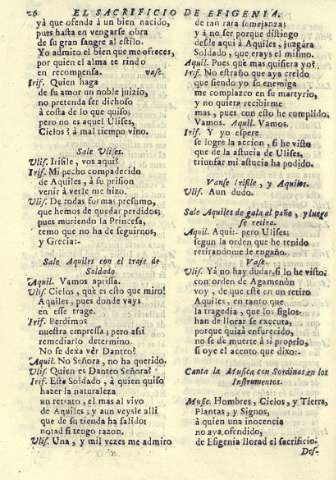 26 EL SACRIFICIO DE EFIGENIA.
yá que ofenda á un bien nacido,
pues hasta en vengarse obra
de su gran sangre al estilo.
Yo admito el bien que me ofreces,
por quien el alma te rindo
en recompensa. vase.
Irif. Quien haga
de su amor un noble juizio,
no pretenda ser dichoso
á costa de lo que quiso;
pero no es aquel Ulises,
Cielos! á mal tiempo vino.
Sale Ulises.
Ulis. Irifile, vos aqui?
Irif. Mi pecho compadecido
de Aquiles, á su prision
venir á verle me hizo.
Ulis. De todas formas presumo,
que hemos de quedar perdidos;
pues muriendo la Princesa,
temo que no ha de seguirnos,
y Grecia:-
Sale Aquiles con el traje de
Soldado
Aquil. Vamos aprisa.
Ulis. Cielos, què es esto que miro!
Aquiles, pues donde vays
en esse trage.
Irif. Perdimos
nuestra empressa; pero assi
remediarlo determino.
No se dexa vèr Danteo?
Aquil. No Señora, no ha querido.
Ulis. Quien es Danteo Señora?
Irif. Este Soldado, à quien quiso
hazer la naturaleza
un retrato, el mas al vivo
de Aquiles; y aun veysle alli
que de su tienda ha salido:
notad si tengo razon.
Ulis. Una, y mil vezes me admiro
de tan rara semejanza;
y à no ser porque distingo
desde aqui à Aquiles, juzgára
Soldado, que erays èl mismo.
Aquil. Pues què mas quisiera yo?
Irif. No estraño que aya creido
que siendo yo su enemiga
me complazco en su martyrio,
y no quiere recibirme
mas, pues con esto he cumplido.
Vamos. Aquil. Vamos.
Irif. Y yo espere
se logre la accion, si he visto
que de la astucia de Ulises,
triunfar mi astucia ha podido.
Vanse Irifile, y Aquiles.
Ulis. Aun dudo.
Sale Aquiles de gala al paño, y luego
se retira.
Aquil. Aqui: pero Ulises;
segun la orden que he tenido
retirandome le engaño.
Vase.
Ulis. Yá no hay dudar, si lo he visto
con orden de Agamenón
voy, de que estè en un retiro
Aquiles, en tanto que
la tragedia, que los siglos
han de llorar se executa,
porque quizà enfurecido,
no se de muerte à si proprio,
si oye el acento que dixo:-
Canta la Musica con Sordinas en los
Instrumentos.
Music. Hombres, Cielos, y Tierra,
Plantas, y Signos,
à quien una inocencia
no aya ofendido,
de Efigenia llorad el sacrificio.
Des-